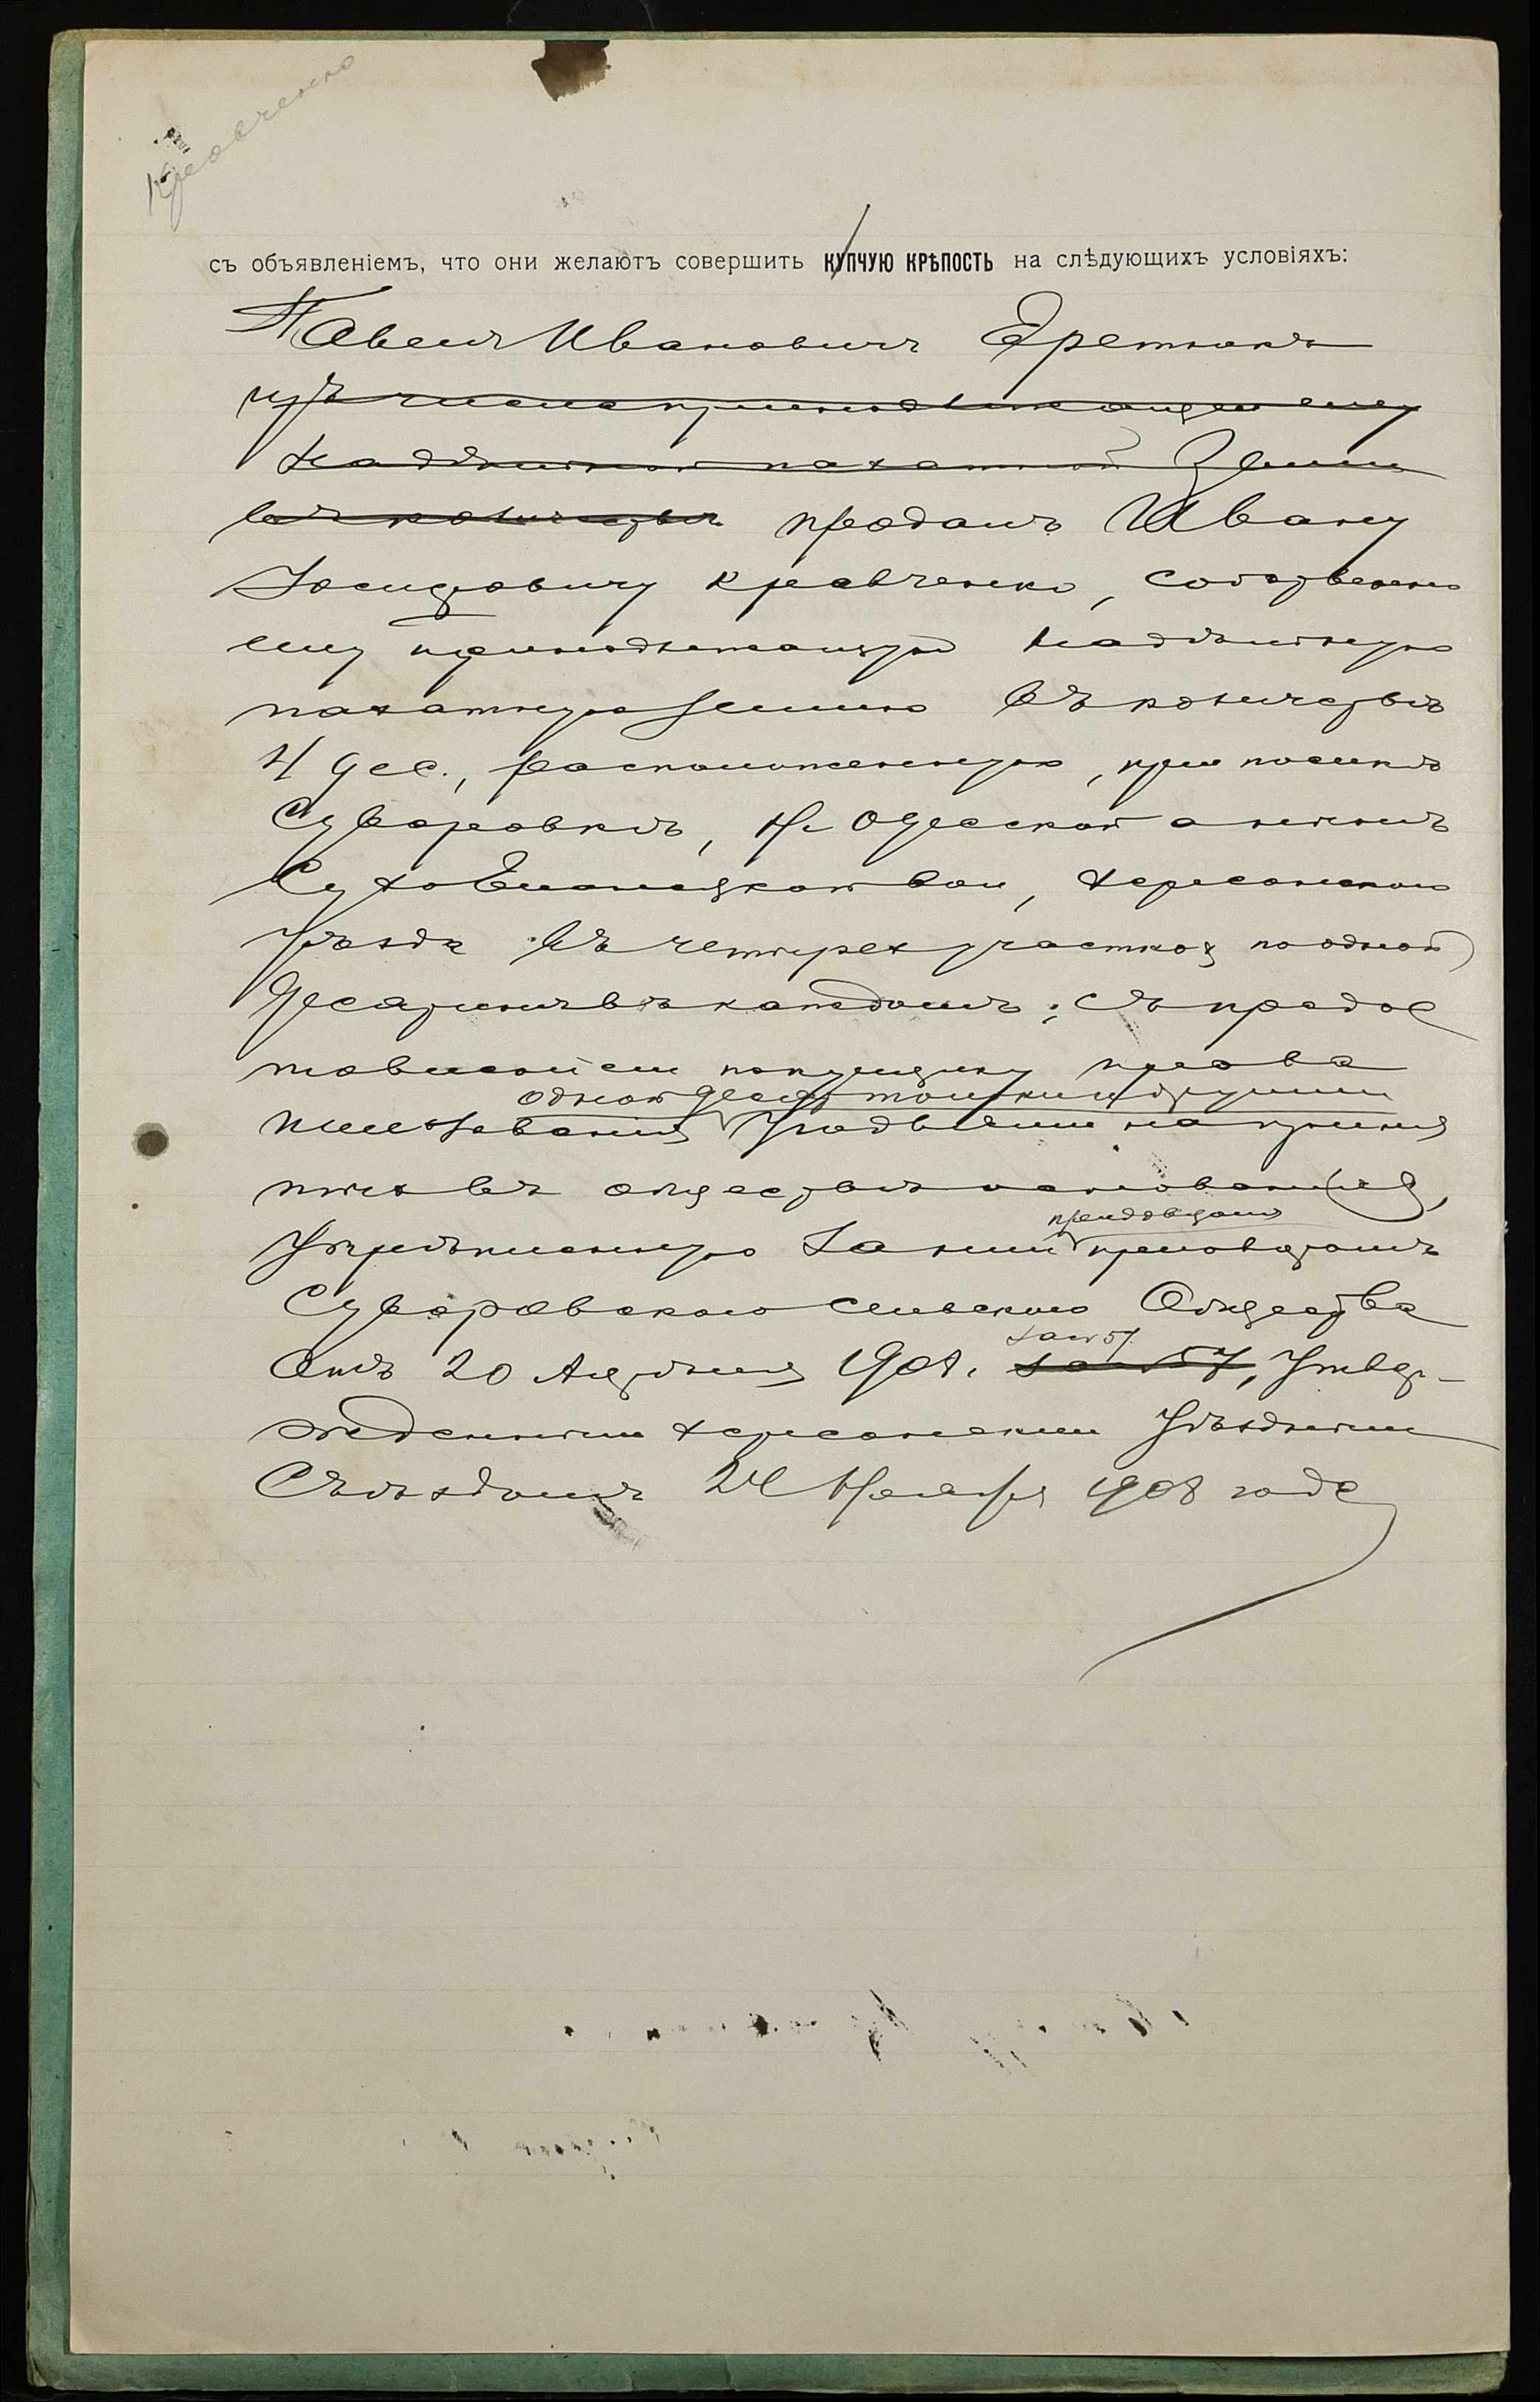 Кравченко
съ объявленіемъ, что они желаютъ совершить КУПЧУЮ КРѢПОСТЬ на слѣдующихъ условіяхъ:
Павелъ Ивановичъ
изъ числа принадлежащей ему
надѣльной пахатной земли
въ количествѣ продалъ Ивану
Іосифовичу Кравченко, собственно
ему принадлежащую надѣльную
пахатную землю въ количествѣ
4 дес., расположенную, при поселкѣ
Суворовкѣ, Н. Одесской а нынѣ
Сухо Еланецкой вол, Херсонскаго
уѣзда въ четырех участках по одной
десятинѣ въ каждомъ; съ предос
тавленіем покупщику права
одной
пользованія
въ обществѣ
приговоромъ
укрѣпленную за ним приговоромъ
Суворовскаго сельскаго Общества
отъ 20 1908. за № 57, утвер-
за № 57.
жденным Херсонским Уѣздным
Съѣздомъ 24 Ноября 1908 года